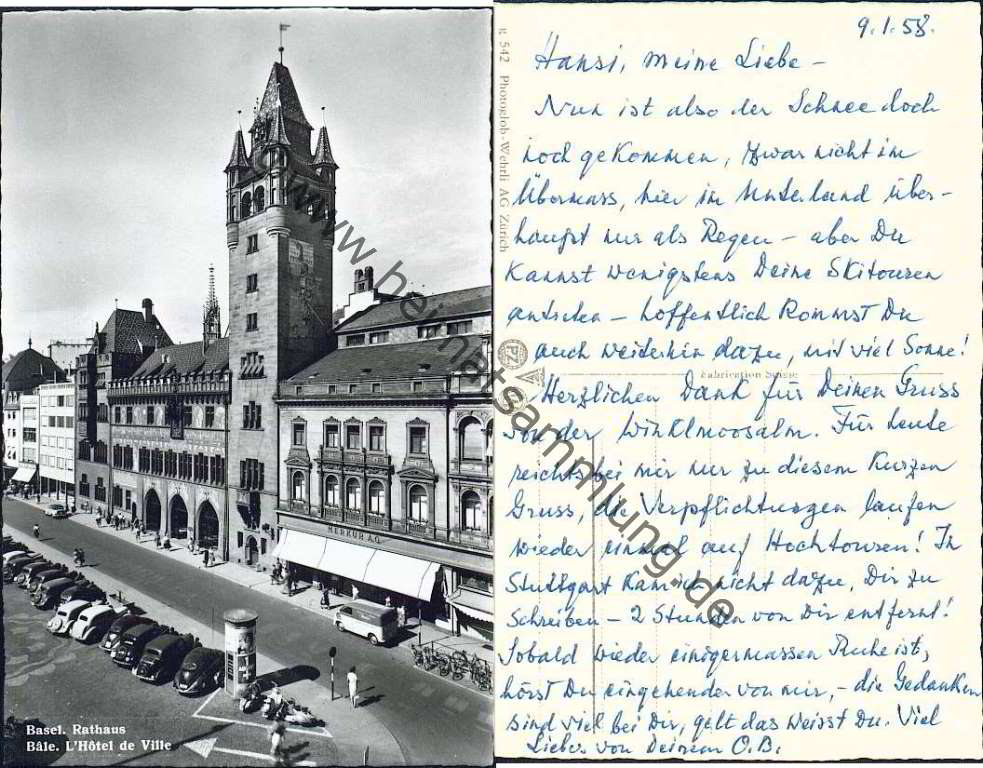 MERKUR AG
Basel. Rathaus
Bâle. L'Hôtel de Ville
www.heimatsammlung.de
g 542 Photoglob-Wehrli AG Zürich
PZ
Fabrication Suisse
9.1.58.
Hansi, meine Liebe –
Nun ist also der Schnee doch
noch gekommen, zwar nicht im
Übermass, hier im Unterland über-
haupt nur als Regen – aber Du
kannst wenigstens Deine Skitouren
antreten – hoffentlich kommst Du
auch weiterhin dazu, mit viel Sonne!
Herzlichen Dank für Deinen Gruss
von der Winklmoosalm. Für heute
reicht's bei mir nur zu diesem kurzen
Gruss, die Verpflichtungen laufen
wieder einmal auf Hochtouren! In
Stuttgart kam ich nicht dazu, Dir zu
schreiben – 2 Stunden von Dir entfernt!
Sobald wieder einigermassen Ruhe ist,
hörst Du eingehender von mir, – die Gedanken
sind viel bei Dir, gelt das weisst Du. Viel
Liebes von Deinem O.B.